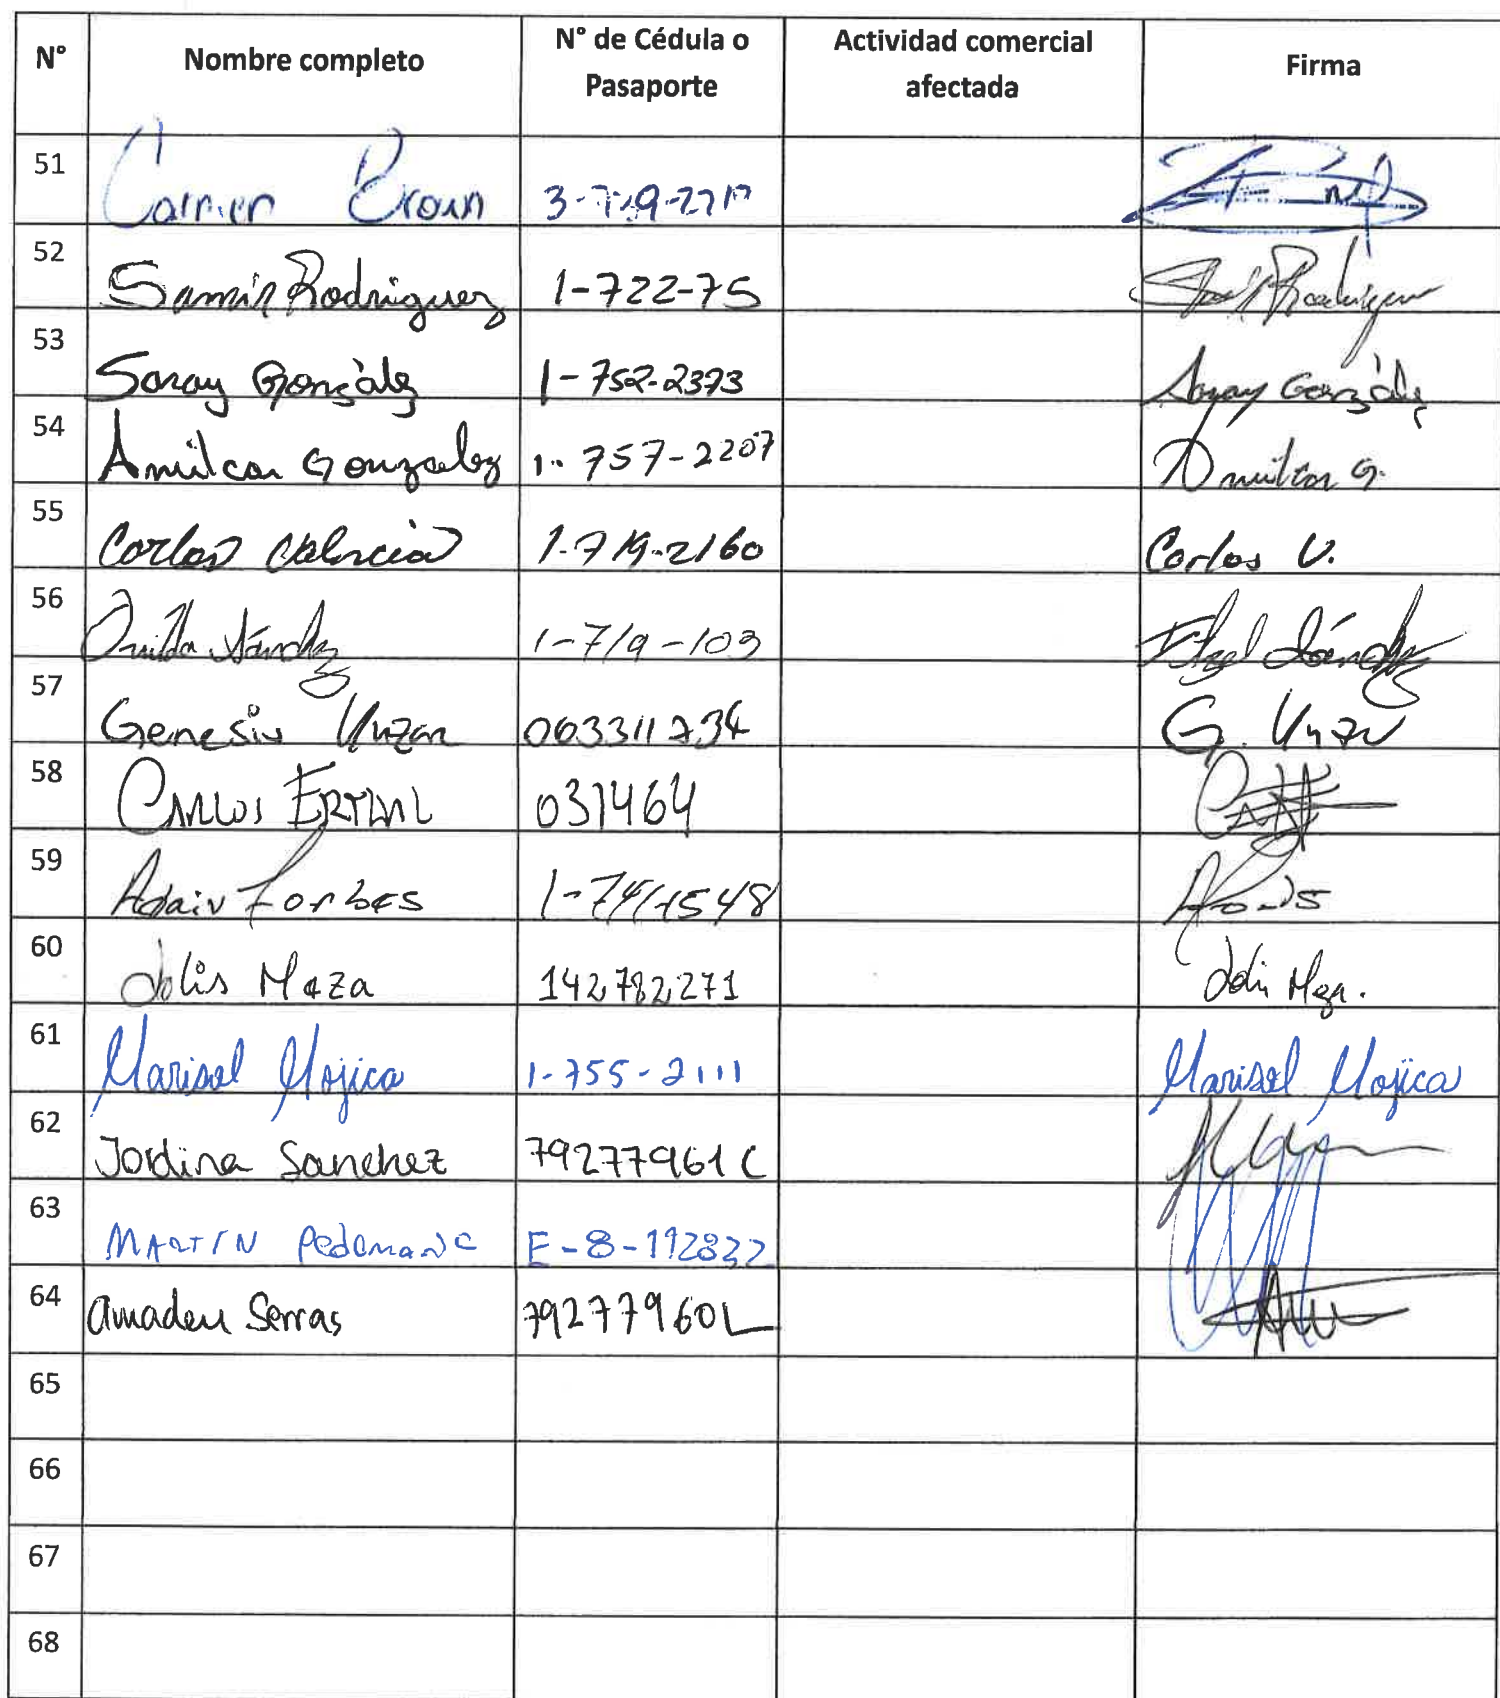 N° Nombre completo N° de Cédula o Pasaporte Actividad comercial afectada Firma
51 Carmen Brown
52 Samir Rodriguez 1-722-75 Rodriguez
53 Saray Gonzàlez 1-752-2373 Saray Gonzàlez
54 Amilcar Gonzalez 1-757-2207 Amilcar G.
55 Carlos Valencia 1-719-2160 Carlos V.
56 Sánchez 1-719-103 Itzel Sánchez
57 Genesis 063311234 G.
58 Carlos 031464
59 Adair Forbes 1-741-1548
60 Maza 142782271
61 Marisol Mojica 1-755-2111 Marisol Mojica
62 Jordina Sanchez 79277961C
63 MARTIN E-8-192822
64 Amadeu Serras 79277960L
65
66
67
68